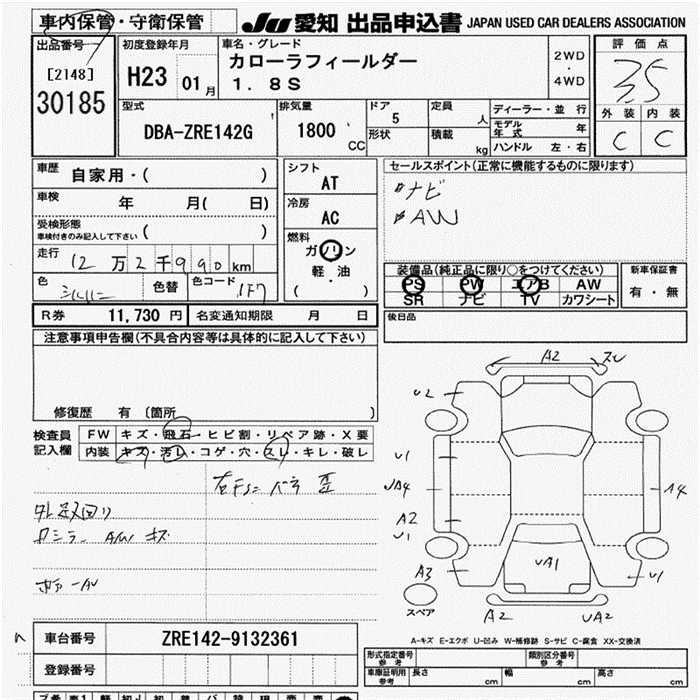 車内保管・守衛保管
JU 愛知 出品申込書 JAPAN USED CAR DEALERS ASSOCIATION
出品番号
[2148]
30185
初度登録年月
H23 01月
車名・グレード
カローラフィールダー
1.8S
2WD
・
4WD
評価点
3.5
外装 内装
C C
型式
DBA-ZRE142G
排気量
1800 CC
ドア
5
形状
定員
人
積載
kg
ディーラー・並行
モデル年式 年
ハンドル 左・右
車歴
自家用・( )
車検
年 月( 日)
受検形態
車検付きのみ記入して下さい ( )
走行 12万2千990km
色 色替 色コード 1F7
シフト
AT
冷房
AC
燃料
ガソリン
・
軽・油
( )
セールスポイント(正常に機能するものに限ります)
ナビ
AW
装備品(純正品に限り○をつけてください)
PS PW エアB AW
SR ナビ TV カワシート
新車保証書
有・無
R券 11,730円 名変通知期限 月 日
後日品
注意事項申告欄(不具合内容等は具体的に記入して下さい)
修復歴 有 〔箇所 〕
検査員記入欄
FW キズ・飛石・ヒビ割・リペア跡・X要
内装 キズ・汚レ・コゲ・穴・スレ・キレ・破レ
AW キズ
A2
U2
U1
A4
A2
U1
A3
UA1
A4
U1
スペア
A2
UA2
A-キズ E-エクボ U-凹み W-補修跡 S-サビ C-腐食 XX-交換済
車台番号 ZRE142-9132361
登録番号
形式指定番号 参考
類別区分番号 参考
車庫証明用 参考 長さ cm 幅 cm 高さ cm